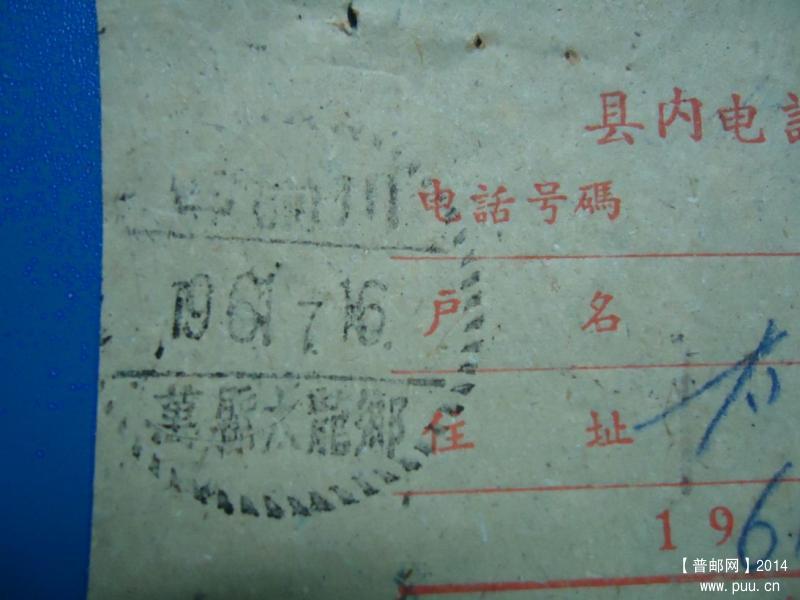 县内电話
电話号碼
四川
1961.7.16.
戶名
萬縣大龍鄉
住址
196
【普邮网】2014
www.puu.cn